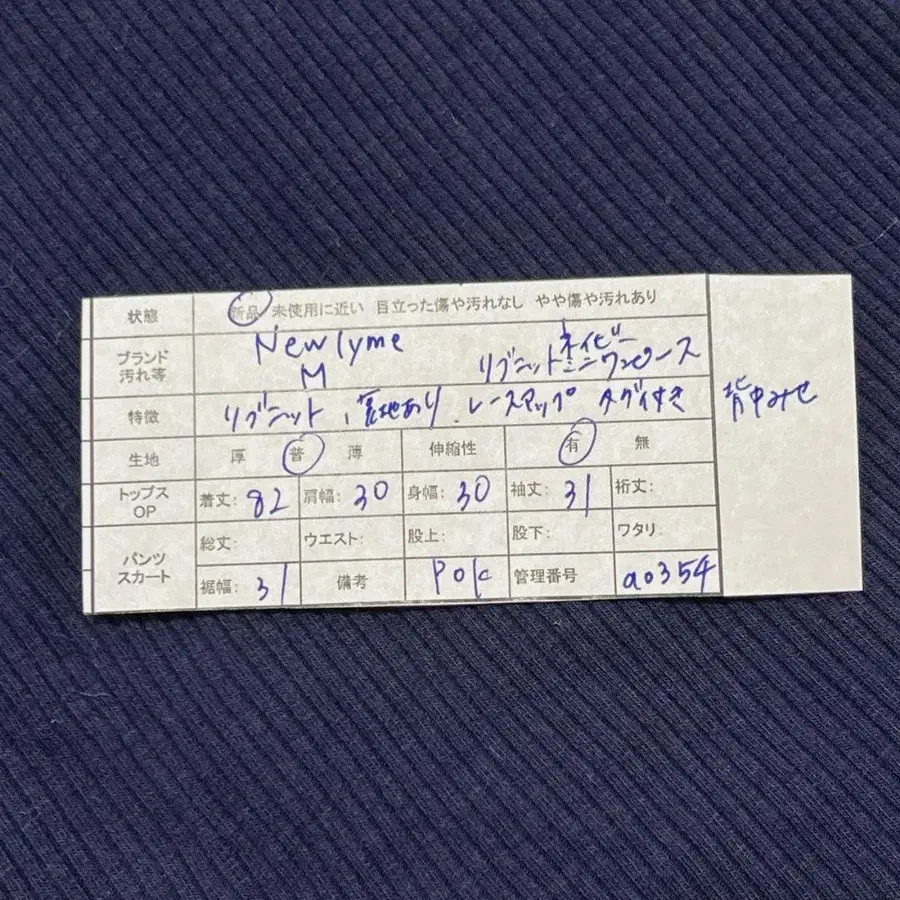 状態 新品 未使用に近い 目立った傷や汚れなし やや傷や汚れあり
ブランド 汚れ等 Newlyme M リブニット ネイビー ミニワンピース
特徴 リブニット 裏地あり レースアップ タグ付き
背中みせ
生地 厚 普 薄 伸縮性 有 無
トップス OP 着丈: 82 肩幅: 30 身幅: 30 袖丈: 31 裄丈:
パンツ スカート 総丈: ウエスト: 股上: 股下: ワタリ:
裾幅: 31 備考 管理番号 a0354